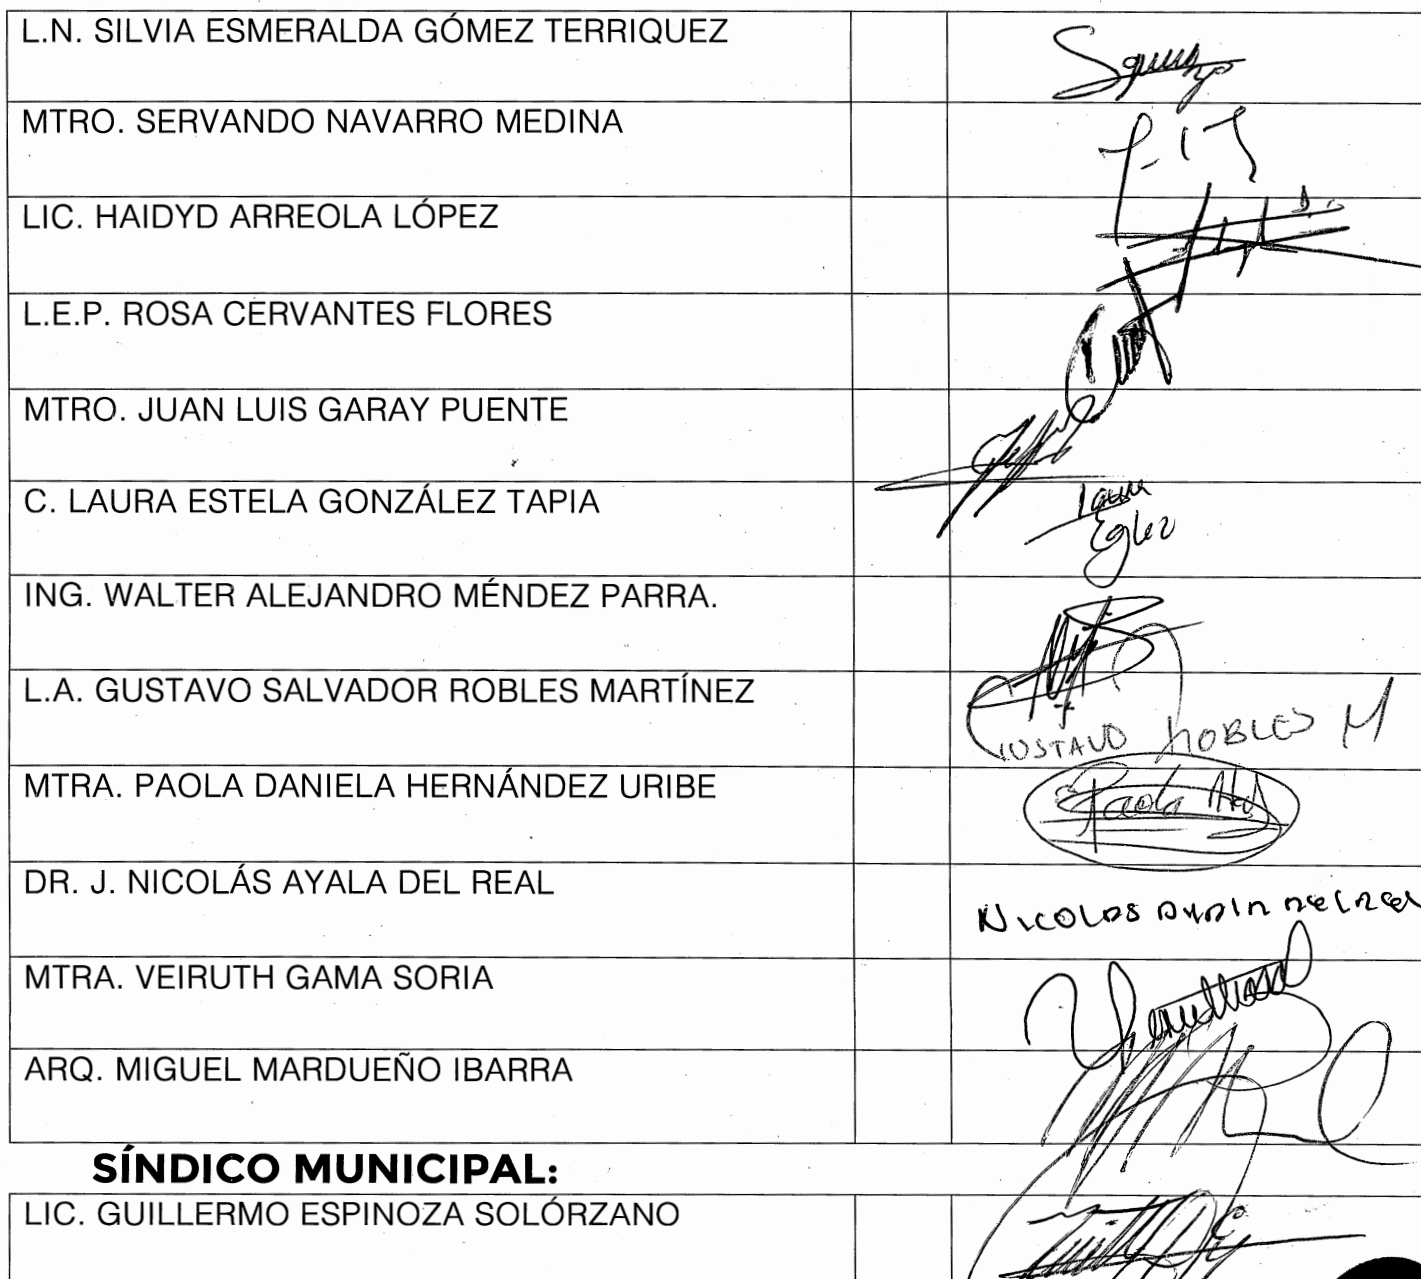 L.N. SILVIA ESMERALDA GÓMEZ TERRIQUEZ
MTRO. SERVANDO NAVARRO MEDINA
LIC. HAIDYD ARREOLA LÓPEZ
L.E.P. ROSA CERVANTES FLORES
MTRO. JUAN LUIS GARAY PUENTE
C. LAURA ESTELA GONZÁLEZ TAPIA
ING. WALTER ALEJANDRO MÉNDEZ PARRA.
L.A. GUSTAVO SALVADOR ROBLES MARTÍNEZ
GUSTAVO ROBLES M
MTRA. PAOLA DANIELA HERNÁNDEZ URIBE
Paola
DR. J. NICOLÁS AYALA DEL REAL
NICOLAS
MTRA. VEIRUTH GAMA SORIA
ARQ. MIGUEL MARDUEÑO IBARRA
SÍNDICO MUNICIPAL:
LIC. GUILLERMO ESPINOZA SOLÓRZANO